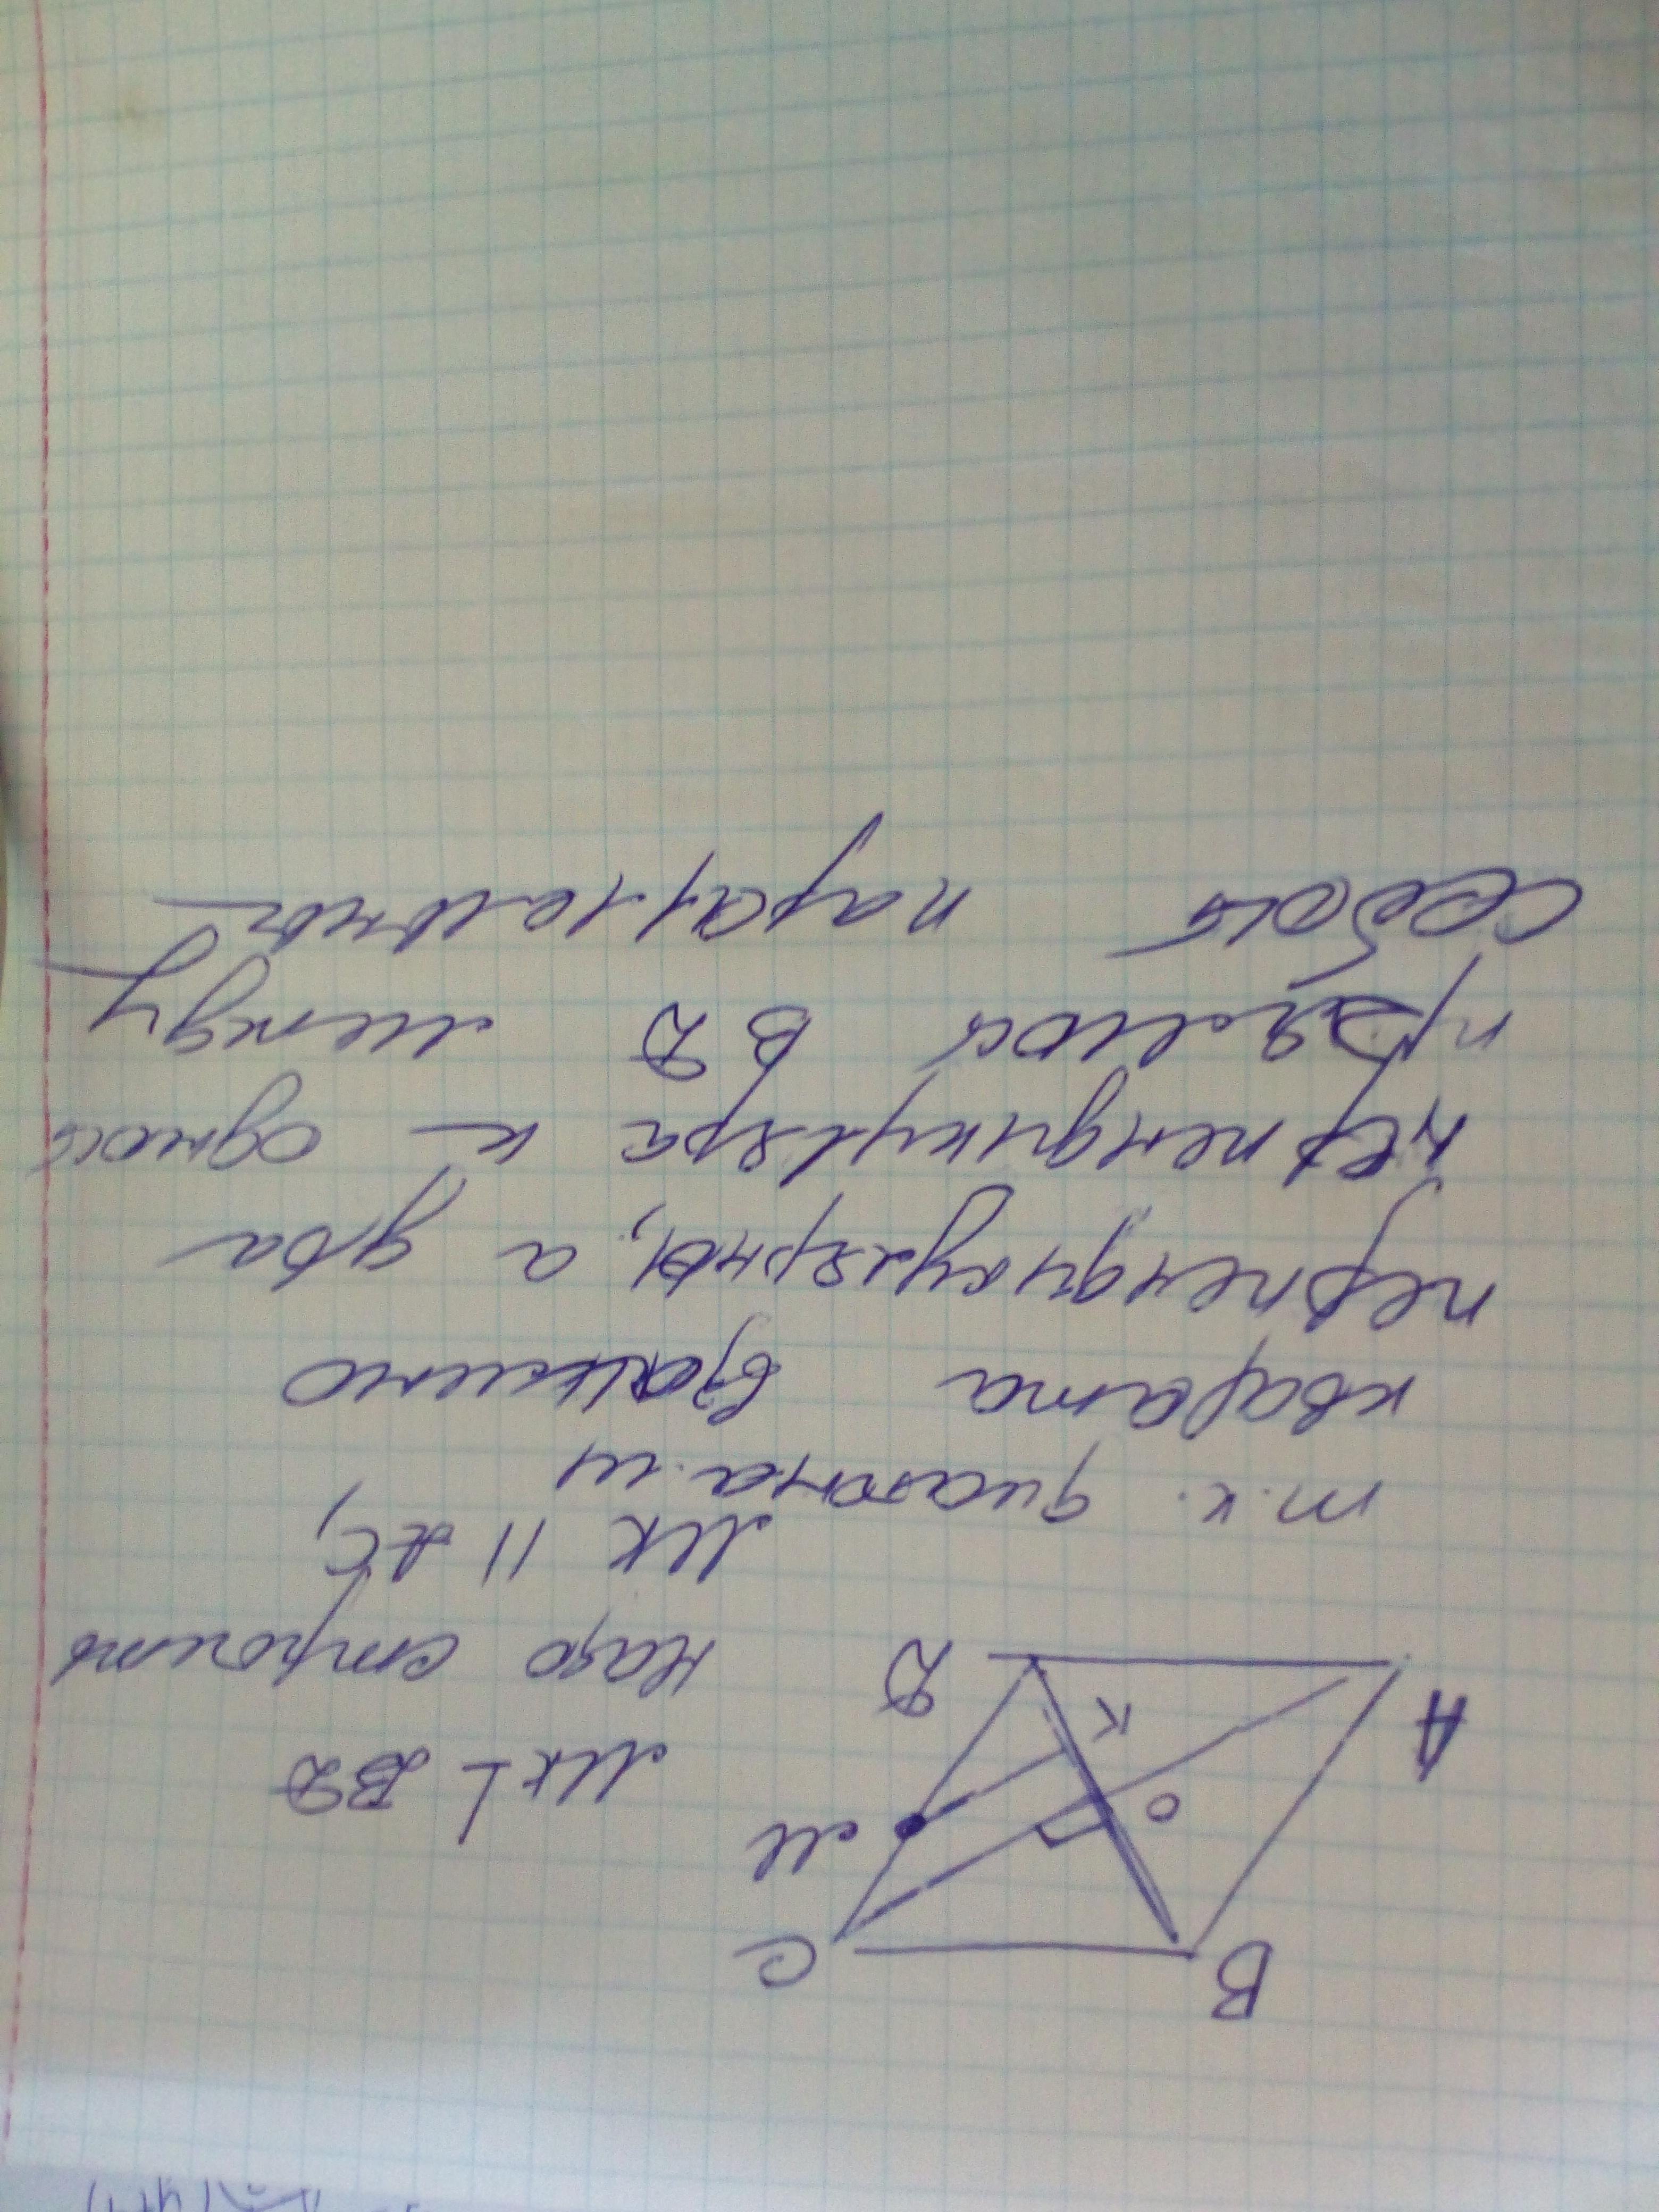 B
C
О
M
MK ⊥ BD
A
K
D
надо строить
MK || AC,
т.к. диагонали
квадрата взаимно
перпендикулярны, а два
перпендикуляра к одной
прямой BD между
собой параллельны